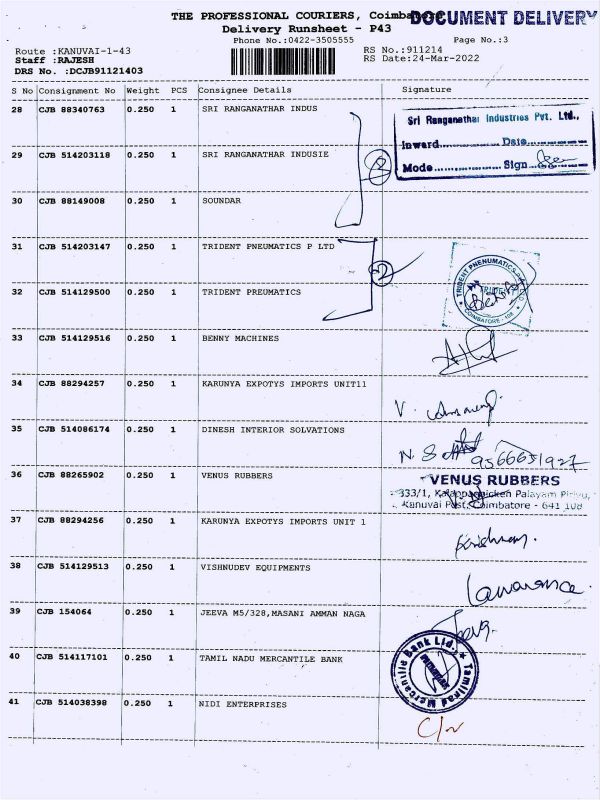 THE PROFESSIONAL COURIERS, Coimbatore
DOCUMENT DELIVERY
Delivery Runsheet - P43
Phone No.:0422-3505555 Page No.:3
Route :KANUVAI-1-43 RS No.:911214
Staff :RAJESH RS Date:24-Mar-2022
DRS No. :DCJB91121403
S No Consignment No Weight PCS Consignee Details Signature
28 CJB 88340763 0.250 1 SRI RANGANATHAR INDUS
Sri Ranganathar Industries Pvt. Ltd.,
Inward Date
Mode Sign
29 CJB 514203118 0.250 1 SRI RANGANATHAR INDUSIE
30 CJB 88149008 0.250 1 SOUNDAR
31 CJB 514203147 0.250 1 TRIDENT PNEUMATICS P LTD
2
TRIDENT PNEUMATICS
COIMBATORE - 108
32 CJB 514129500 0.250 1 TRIDENT PREUMATICS
33 CJB 514129516 0.250 1 BENNY MACHINES
34 CJB 88294257 0.250 1 KARUNYA EXPOTYS IMPORTS UNIT11
V.
35 CJB 514086174 0.250 1 DINESH INTERIOR SOLVATIONS
N. S
9566651927
36 CJB 88265902 0.250 1 VENUS RUBBERS
VENUS RUBBERS
333/1, Kalappanaicken Palayam Pirivu,
Kanuvai Post, Coimbatore - 641 108
37 CJB 88294256 0.250 1 KARUNYA EXPOTYS IMPORTS UNIT 1
38 CJB 514129513 0.250 1 VISHNUDEV EQUIPMENTS
Lawarance.
39 CJB 154064 0.250 1 JEEVA M5/328,MASANI AMMAN NAGA
Jeeva.
40 CJB 514117101 0.250 1 TAMIL NADU MERCANTILE BANK
Tamilnad Mercantile Bank Ltd.,
41 CJB 514038398 0.250 1 NIDI ENTERPRISES
C/n